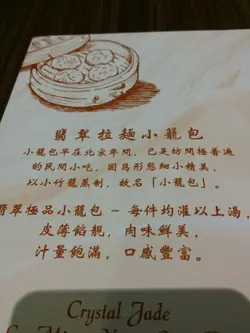 翡翠拉麵小籠包
小籠包早在北宋年間，已是坊間極普遍
的民間小吃，因爲形態細小精美，
以小竹籠蒸制，故名「小籠包」。
翡翠極品小籠包 – 每件均灌以上湯，
皮薄餡靚，肉味鮮美，
汁量飽滿，口感豐富。
Crystal Jade